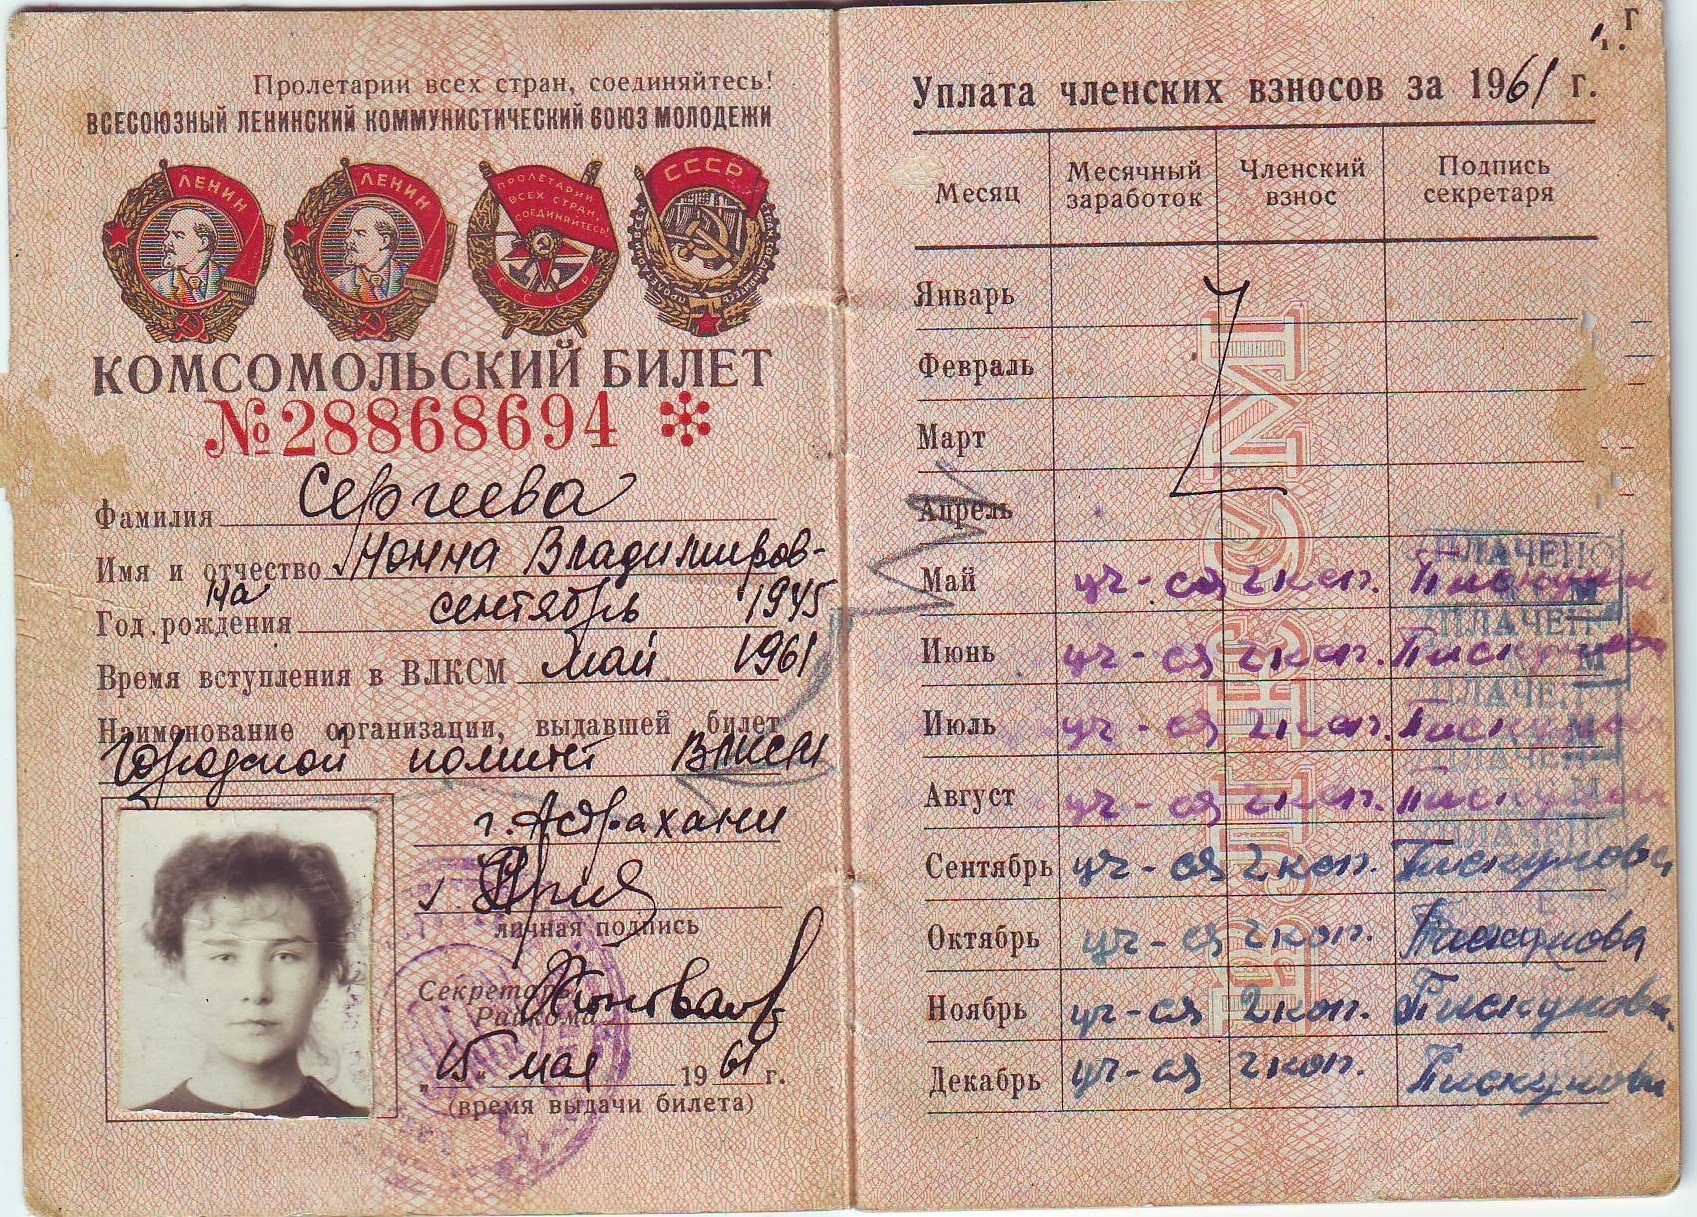 Пролетарии всех стран, соединяйтесь!
ВСЕСОЮЗНЫЙ ЛЕНИНСКИЙ КОММУНИСТИЧЕСКИЙ СОЮЗ МОЛОДЕЖИ
ЛЕНИН
ЛЕНИН
ПРОЛЕТАРИИ ВСЕХ СТРАН, СОЕДИНЯЙТЕСЬ!
СССР
СССР
КОМСОМОЛЬСКИЙ БИЛЕТ
№28868694
Фамилия Сергеева
Имя и отчество Нонна Владимиров-
на
Год рождения сентябрь 1945
Время вступления в ВЛКСМ май 1961
Наименование организации, выдавшей билет
Городской комитет ВЛКСМ
г. Астрахани
личная подпись
Секретарь
Райкома
"15" мая 1961 г.
(время выдачи билета)
Уплата членских взносов за 1961 г.
Месяц Месячный заработок Членский взнос Подпись секретаря
ВЛКСМ
Январь
Февраль
Март
Апрель
Май уч-ся 2 коп. Пискунова
Июнь уч-ся 2 коп. Пискунова
Июль уч-ся 2 коп. Пискунова
Август уч-ся 2 коп. Пискунова
Сентябрь уч-ся 2 коп. Пискунова
Октябрь уч-ся 2 коп. Пискунова
Ноябрь уч-ся 2 коп. Пискунова
Декабрь уч-ся 2 коп. Пискунова